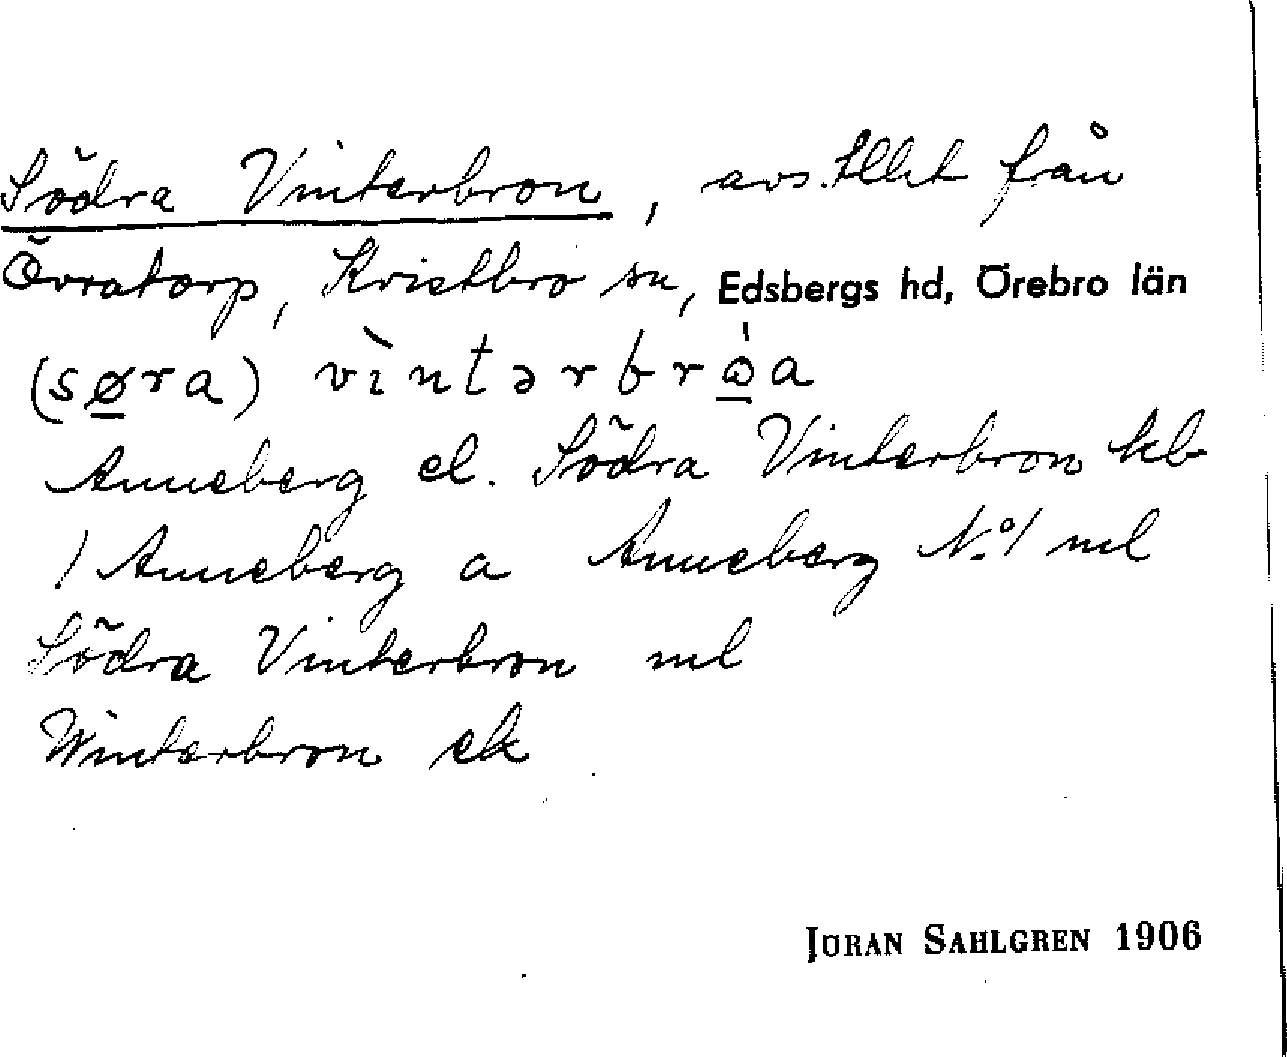 Södra Vinterbron, avs. tllht från
Övratorp, Kvistbro sn, Edsbergs hd, Örebro län
(søra) vìntərbrɷ̀a
Anneberg el. Södra Vinterbron kb
/ Anneberg a Anneberg No 1 ml
Södra Vinterbron ml
Winterbron ek
JÖRAN SAHLGREN 1906